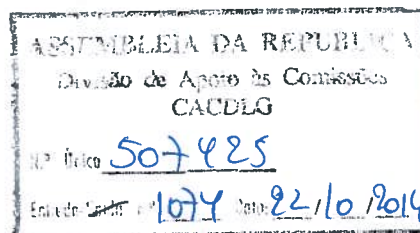 ASSEMBLEIA DA REPÚBLICA
Divisão de Apoio às Comissões
CACDLG
N.º Único 507425
Entrada/Saída n.º 1074 Data 22/10/2014